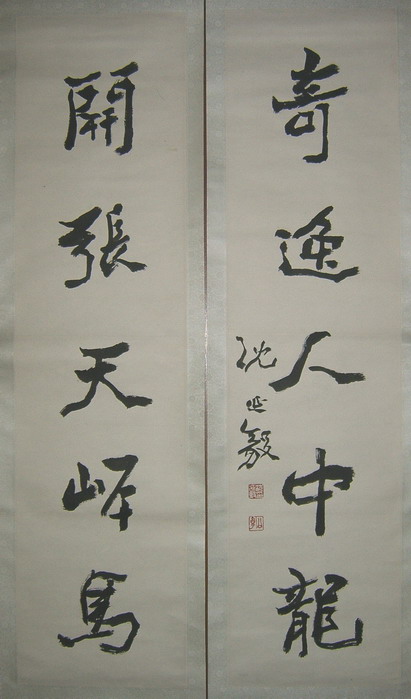 奇逸人中龍
沈延毅
開張天岸馬